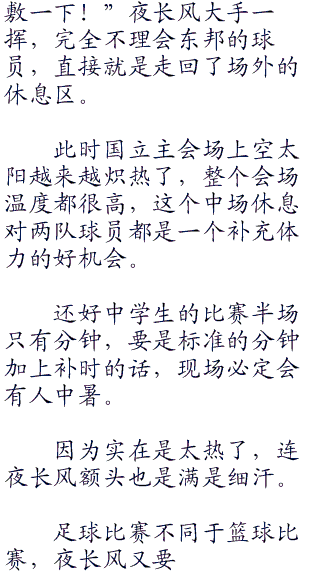 敷一下！”夜长风大手一
挥，完全不理会东邦的球
员，直接就是走回了场外的
休息区。
此时国立主会场上空太
阳越来越炽热了，整个会场
温度都很高，这个中场休息
对两队球员都是一个补充体
力的好机会。
还好中学生的比赛半场
只有分钟，要是标准的分钟
加上补时的话，现场必定会
有人中暑。
因为实在是太热了，连
夜长风额头也是满是细汗。
足球比赛不同于篮球比
赛，夜长风又要